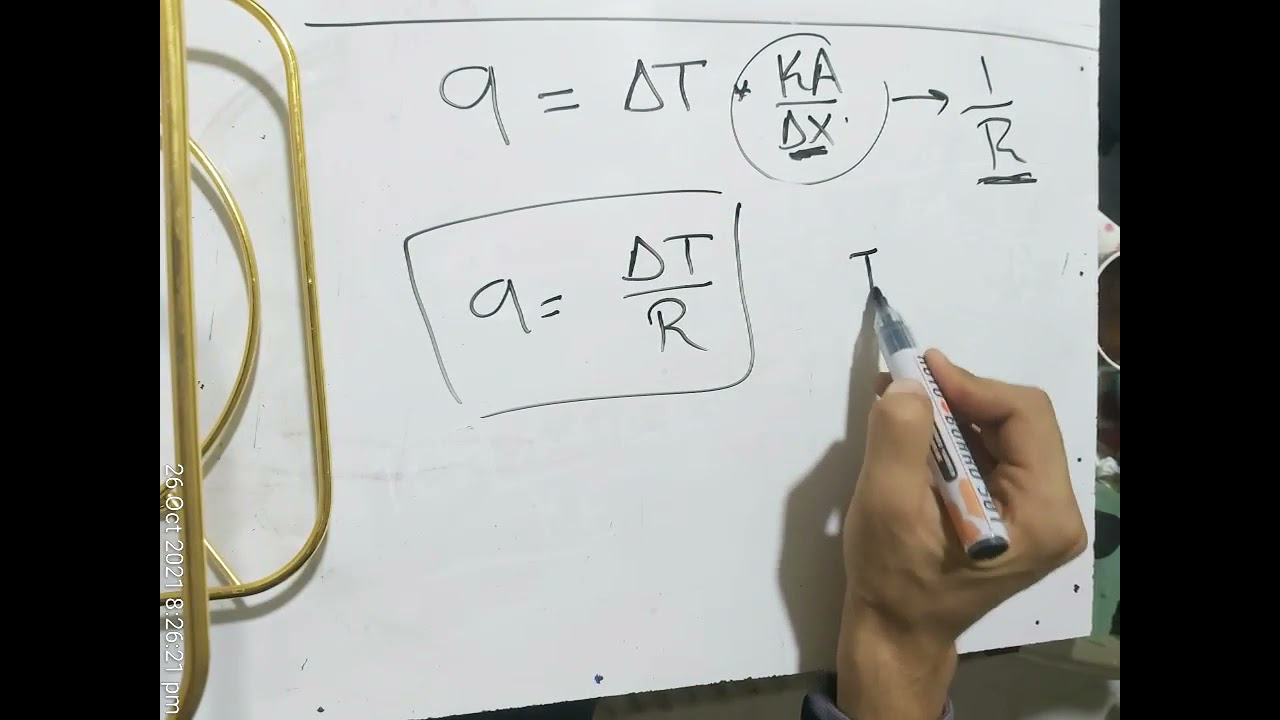 q = ΔT * KA/ΔX → 1/R
q = ΔT/R
T
26 Oct 2021 8:26:21 pm